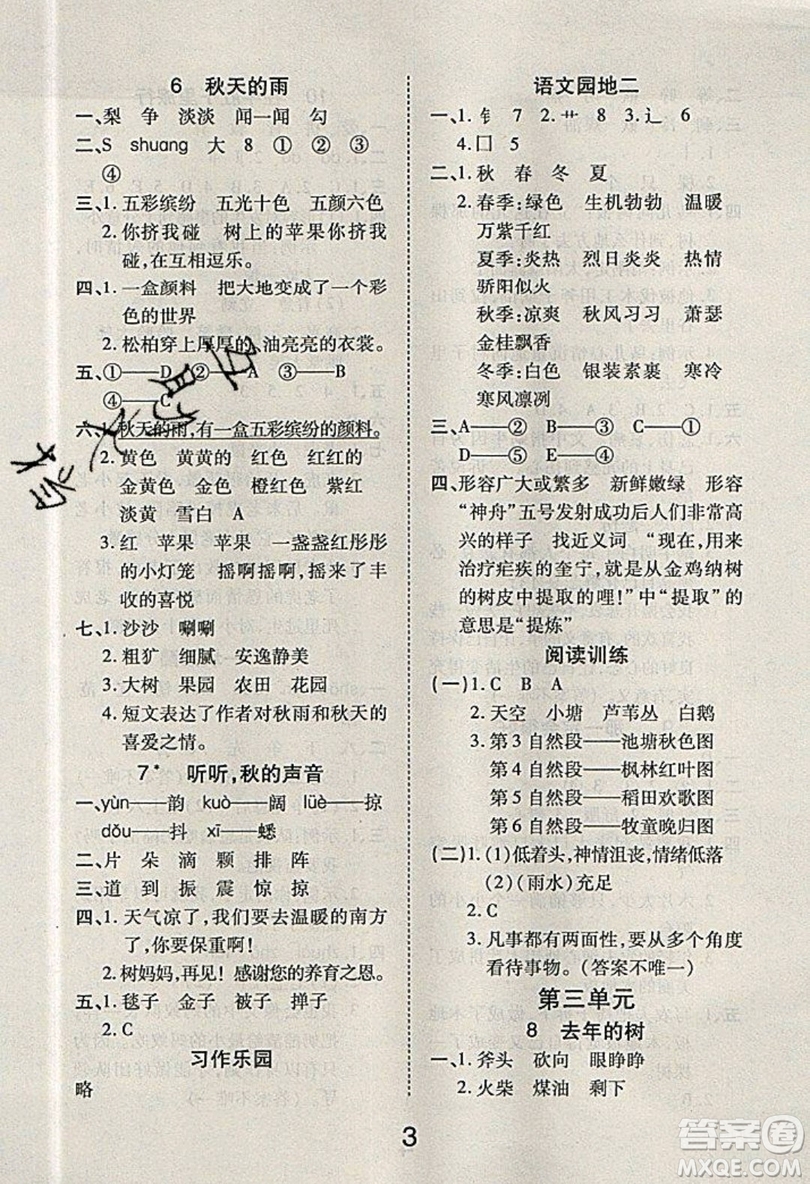 6 秋天的雨
一、梨 争 淡淡 闻一闻 勾
二、S shuang 大 8 ① ② ③
④
三、1. 五彩缤纷 五光十色 五颜六色
2. 你挤我碰 树上的苹果你挤我
碰,在互相逗乐。
四、1. 一盒颜料 把大地变成了一个彩
色的世界
2. 松柏穿上厚厚的、油亮亮的衣裳。
五、①——D ②——A ③——B
④——C
六、1. 秋天的雨,有一盒五彩缤纷的颜料。
2. 黄色 黄黄的 红色 红红的
金黄色 金色 橙红色 紫红
淡黄 雪白 A
3. 红 苹果 苹果 一盏盏红彤彤
的小灯笼 摇啊摇啊 摇来了丰
收的喜悦
七、1. 沙沙 唰唰
2. 粗犷 细腻 安逸静美
3. 大树 果园 农田 花园
4. 短文表达了作者对秋雨和秋天的
喜爱之情。
7* 听听,秋的声音
一、yùn——韵 kuò——阔 lüè——掠
dǒu——抖 xī——蟋
二、片 朵 滴 颗 排 阵
三、道 到 振 震 惊 掠
四、1. 天气凉了,我们要去温暖的南方
了,你要保重啊!
2. 树妈妈,再见! 感谢您的养育之恩。
五、1. 毯子 金子 被子 掸子
2. C
习作乐园
略
语文园地二
一、1. 钅 7 2. 艹 8 3. 辶 6
4. 囗 5
二、1. 秋 春 冬 夏
2. 春季:绿色 生机勃勃 温暖
万紫千红
夏季:炎热 烈日炎炎 热情
骄阳似火
秋季:凉爽 秋风习习 萧瑟
金桂飘香
冬季:白色 银装素裹 寒冷
寒风凛冽
三、A——② B——① C——③
D——⑤ E——④
四、形容广大或繁多 新鲜嫩绿 形容
“神舟”五号发射成功后人们非常高
兴的样子 找近义词 “现在,用来
治疗疟疾的奎宁,就是从金鸡纳树
的树皮中提取的哩!”中“提取”的
意思是“提炼”
阅读训练
(一)1. C B A
2. 天空 小塘 芦苇丛 白鹅
3. 第 3 自然段——池塘秋色图
第 4 自然段——枫林红叶图
第 5 自然段——稻田欢歌图
第 6 自然段——牧童晚归图
(二)1. (1)低着头,神情沮丧,情绪低落
(2)(雨水)充足
2. C
3. 凡事都有两面性,要从多个角度
看待事物。(答案不唯一)
第三单元
8 去年的树
一、1. 斧头 砍向 眼睁睁
2. 火柴 煤油 剩下
3
答案圈
MXQE.COM